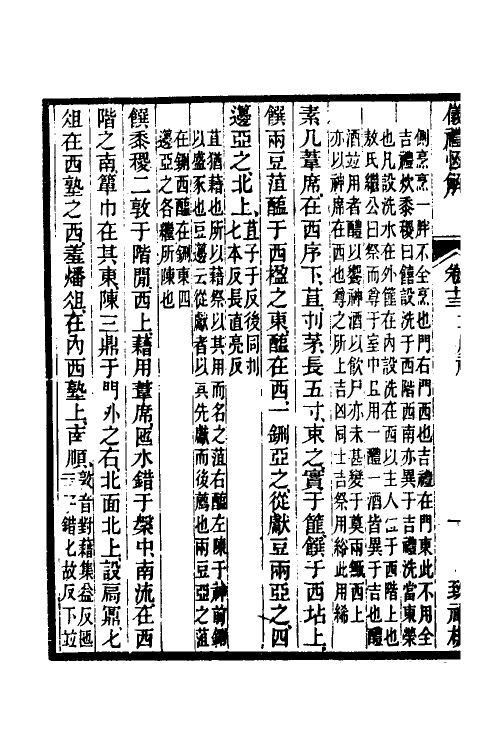 側烹烹一胖不全烹也門右門西也吉禮在門東此不用全
吉禮炊黍稷曰饎設洗于西階西南亦異于吉禮洗當東榮
也凡設洗水在外篚在內設洗在西以主人位于西階上也
敖氏繼公曰祭而尊于室中且用一醴一酒皆異于吉也醴
酒竝用者醴以饗神酒以飲尸亦未甚變于奠兩甒西上
亦以神席在西也尊之所上吉凶同士吉祭用綌此用絺
素几葦席在西序下苴刌茅長五寸束之實于篚饌于西坫上
饌兩豆菹醢于西楹之東醢在西一鉶亞之從獻豆兩亞之四
籩亞之北上
苴子于反後同刌
七本反長直亮反
苴猶藉也所以藉祭以其用而名之菹右醢左陳于神前鉶
以盛豕也豆籩云從獻者以其先獻而後薦也兩豆亞之菹
在鉶西醢在鉶東四
籩亞之各繼所陳也
饌黍稷二敦于階閒西上藉用葦席匜水錯于槃中南流在西
階之南簞巾在其東陳三鼎于門外之右北面北上設扃鼏匕
俎在西塾之西羞燔俎在內西塾上南順
敦音對藉集益反匜
錯七故反下竝
儀禮
卷